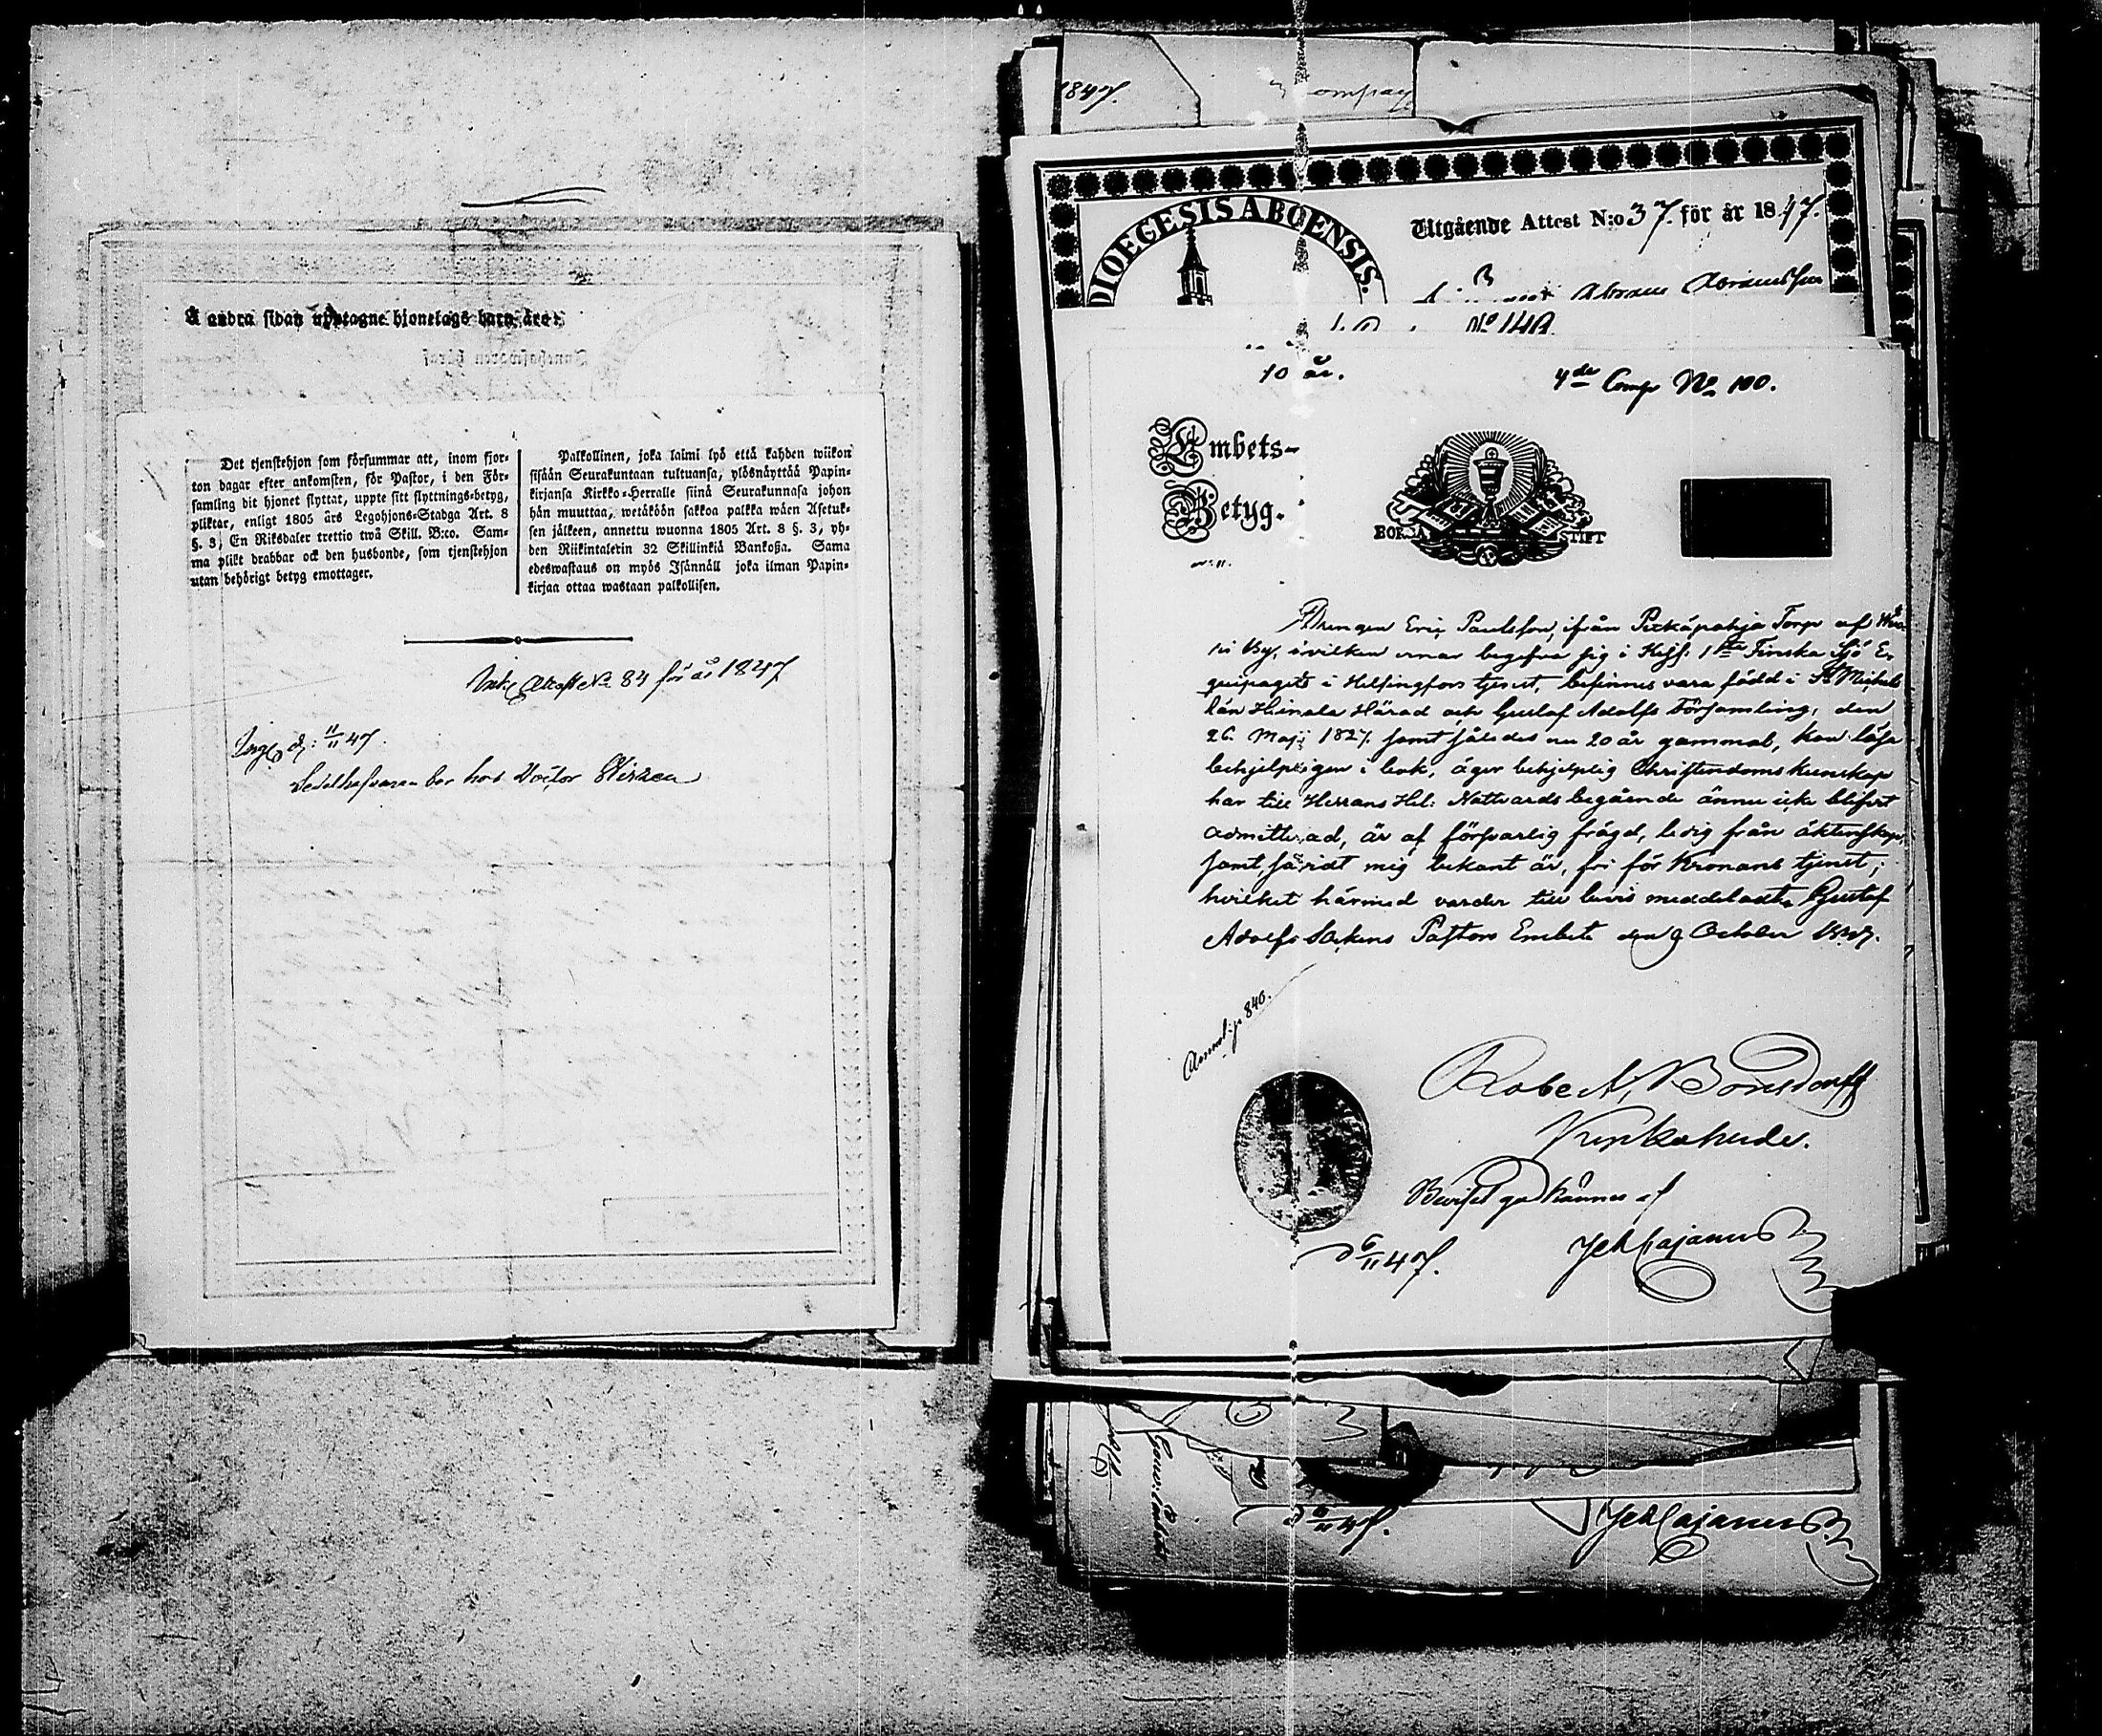 Å andra sidan upptagne hjonelags barn äro:
Det tjenstehjon som försummar att, inom fjor-
ton dagar efter ankomsten, för Pastor, i den För-
samling dit hjonet flyttat, uppte sitt flyttnings-betyg,
pliktar, enligt 1805 års Legohjons-Stadga Art. 8
§. 3, En Riksdaler trettio twå Skill. B:co. Sam-
ma plikt drabbar ock den husbonde, som tjenstehjon
utan behörigt betyg emottager.
Palkollinen, joka laimi lyö että kahden wiikon
sisään Seurakuntaan tultuansa, ylösnäyttää Papin-
kirjansa Kirkko-Herralle siinä Seurakunnasa johon
hän muuttaa, wetäköön sakkoa palkka wäen Asetuk-
sen jälkeen, annettu wuonna 1805 Art. 8 §. 3, yh-
den Riikintalerin 32 Skillinkiä Bankoßa. Sama
edeswastaus on myös Isännäll joka ilman Papin-
kirjaa ottaa wastaan palkollisen.
Attest No 84 för år 1847
d: 11/11 47.
Sedelhafvaren bor hos Doctor
1847.
Compag
DIOECESIS ABOENSIS.
Utgående Attest N:o 37. för år 1847.
Abram Abramsson
No 14A.
10 år.
4de Comp No 100.
Embets-
Betyg.
BORGÅ STIFT
Drengen Eric Paulsson, ifrån Pitkäpohja Torp af
by, hvilken ernar begifva sig i Kejs: 1sta Finska Sjö E-
quipagets i Helsingfors tjenst, befinnes vara född i St Michels
län Heinola Härad och Gustaf Adolfs Församling, den
26 Maji 1827. samt således nu 20 år gammal, kan läsa
behjelpligen i bok, äger behjelplig Christendoms kunskap
har till Herrans Hel: Nattvards begående ännu icke blifvit
admitterad, är af förswarlig frägd, ledig från äktenskap,
samt, såvidt mig bekant är, fri för Kronans tjenst;
hvilket härmed varder till bevis meddeladt. Gustaf
Adolfs Sockens Pastors Embete den 9 October 1847.
Robert, Bonsdorff
Kyrkoherde.
Beviset godkännes af
d 6/11 47.
Cajanus
d 6/11 47.
Cajanus